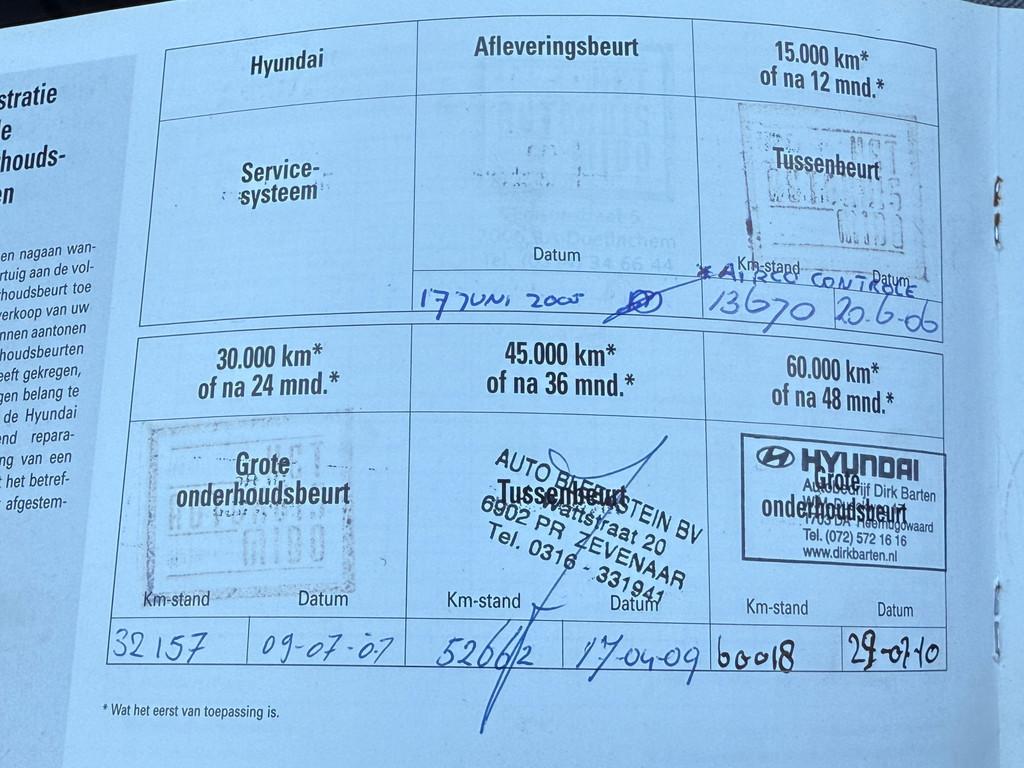 stratie
le
houds-
en
en nagaan wan-
rtuig aan de vol-
rhoudsbeurt toe
verkoop van uw
nnen aantonen
houdsbeurten
eeft gekregen,
gen belang te
de Hyundai
end repara-
ng van een
t het betref-
afgestem-
Hyundai
Afleveringsbeurt
15.000 km*
of na 12 mnd.*
Service-
systeem
Tussenbeurt
Datum
Km-stand
Datum
* AIRCO CONTROLE
17 JUNI 2005
13670
20-6-06
30.000 km*
of na 24 mnd.*
45.000 km*
of na 36 mnd.*
60.000 km*
of na 48 mnd.*
Grote
onderhoudsbeurt
Km-stand
Datum
32157
09-07-07
Tussenbeurt
AUTO BLEEKSTEIN BV
Wattstraat 20
6902 PR ZEVENAAR
Tel. 0316 - 331941
Km-stand
Datum
52662
17-04-09
HYUNDAI
Grote
onderhoudsbeurt
Autobedrijf Dirk Barten
1703 DA Heerhugowaard
Tel. (072) 572 16 16
www.dirkbarten.nl
Km-stand
Datum
60018
29-07-10
* Wat het eerst van toepassing is.